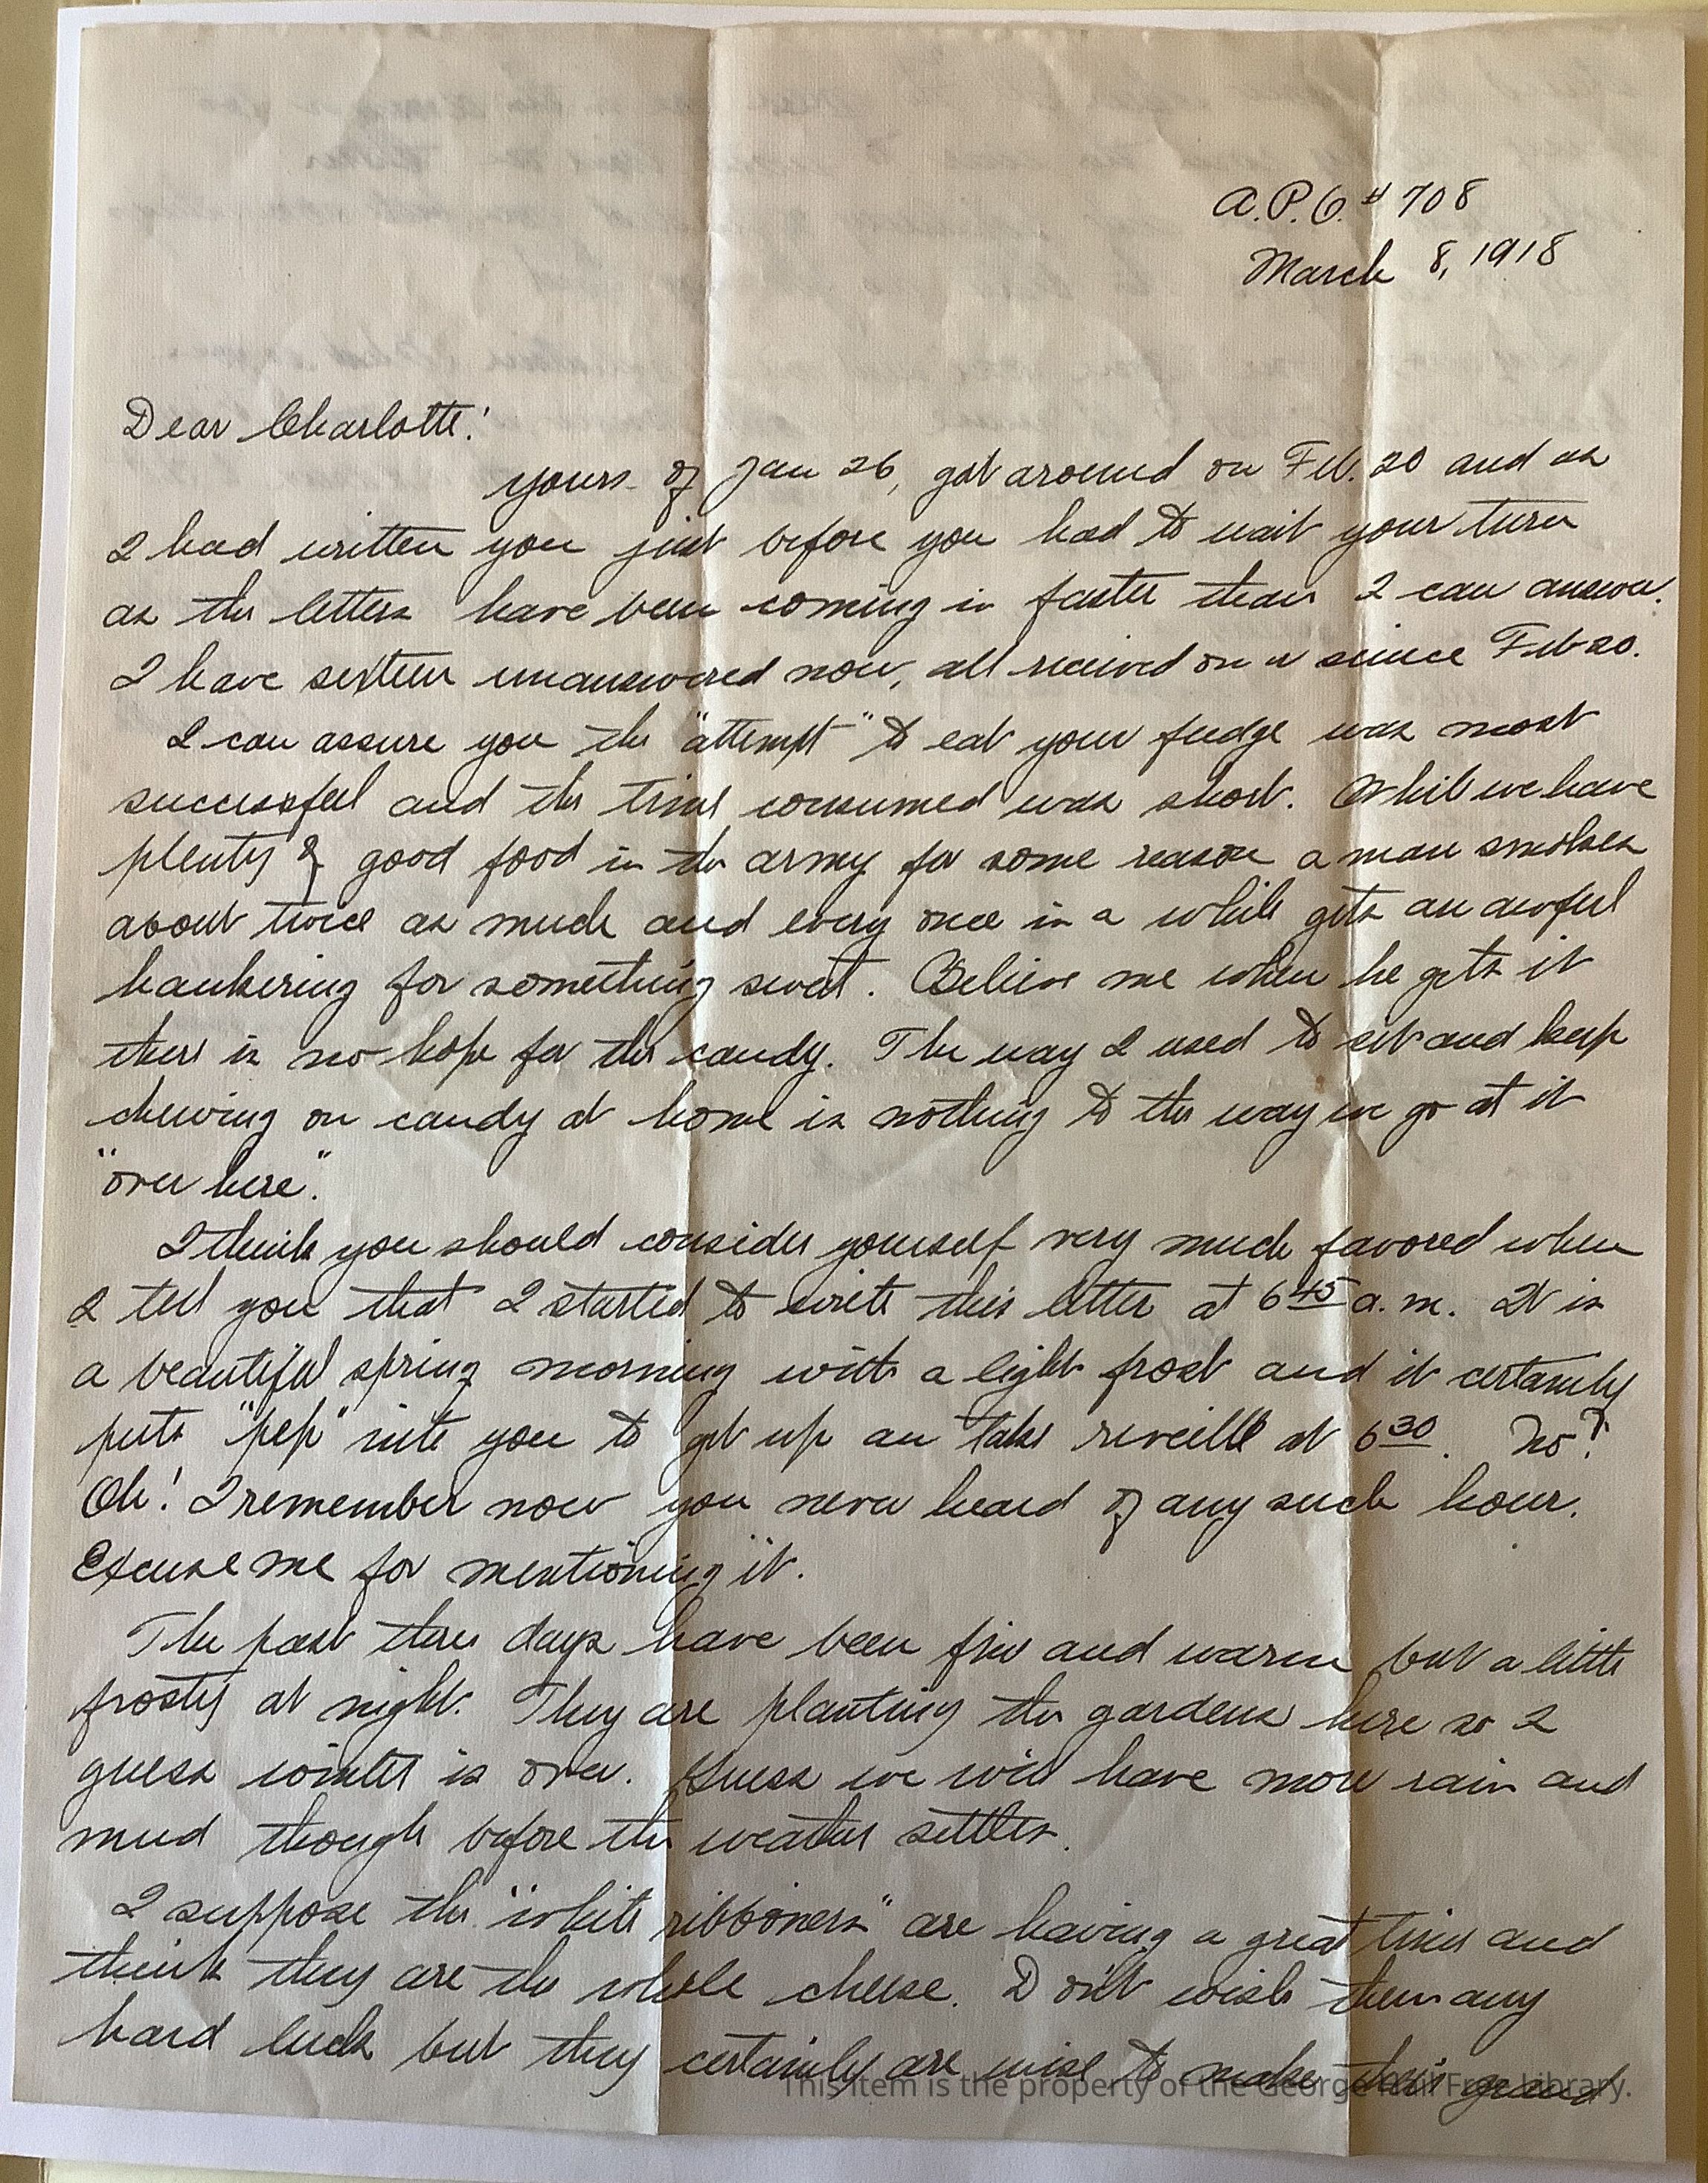 A.P.O. # 708
March 8, 1918
Dear Charlotte:
yours of Jan 26, got around on Feb. 20 and as
I had written you just before you had to wait your turn
as the letters have been coming in faster than I can answer.
I have sixteen unanswered now, all received on or since Feb 20.
I can assure you the "attempt" to eat your fudge was most
successful and the time consumed was short. While we have
plenty of good food in the army for some reason a man smokes
about twice as much and every once in a while gets an awful
hankering for something sweet. Believe me when he gets it
there is no hope for the candy. The way I used to sit and keep
chewing on candy at home is nothing to the way we go at it
"over here".
I think you should consider yourself very much favored when
I tell you that I started to write this letter at 6 45 a.m. It is
a beautiful spring morning with a light frost and it certainly
puts "pep" into you to get up an take reveille at 6 30. No?
Oh! I remember now you never heard of any such hour.
Excuse me for mentioning it.
The past three days have been fine and warm but a little
frosty at night. They are planting the gardens here so I
guess winter is over. Guess we will have more rain and
mud though before the weather settles.
I suppose the "white ribboners" are having a great time and
think they are the whole cheese. Don't wish them any
hard luck but they certainly are wise to make their grand
This item is the property of the George Hail Free Library.